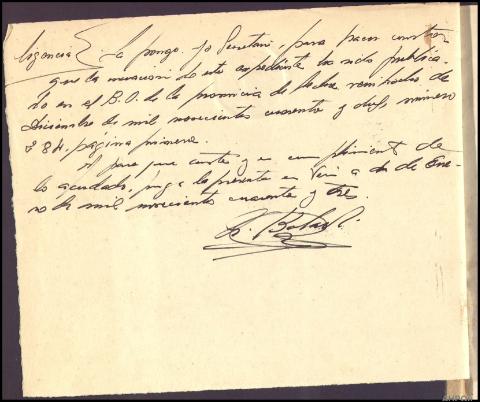 ligencia.- La pongo yo Secretario, para hacer constar
que la incoación de este expediente ha sido publica-
do en el B.O. de la provincia de fecha veintidos de
Diciembre de mil novecientos cuarenta y dos, número
284, página primera.
Y para que conste y en cumplimiento de
lo acordado, pongo la presente en a de Ene-
ro de mil novecientos cuarenta y tres.